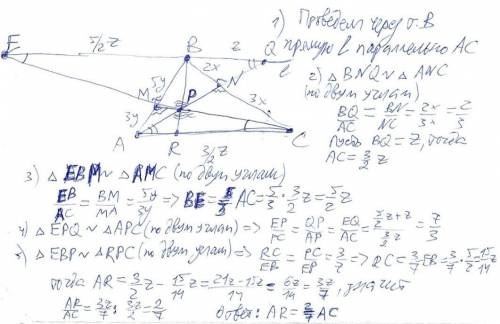 E
5/2 z
B
z
Q
l
2x
5y
N
M
P
3x
3y
A
R
3/2 z
C
1) Проведем через т. B
прямую l параллельно AC
2) △BNQ ∾ △ANC
(по двум углам)
BQ/AC = BN/NC = 2x/3x = 2/3
Пусть BQ = z, тогда
AC = 3/2 z
3) △EBM ∾ △AMC (по двум углам)
EB/AC = BM/MA = 5y/3y => BE = 5/3 AC = 5/3 · 3/2 z = 5/2 z
4) △EPQ ∾ △APC (по двум углам) => EP/PC = QP/AP = EQ/AC = (5/2 z + z)/(3/2 z) = 7/3
5) △EBP ∾ △RPC (по двум углам) => RC/EB = PC/EP = 3/7 => RC = 3/7 EB = 3/7 · 5/2 z = 15/14 z
тогда AR = 3/2 z - 15/14 z = (21z - 15z)/14 = 6z/14 = 3z/7, значит
AR/AC = 3z/7 : 3z/2 = 2/7
Ответ: AR = 2/7 AC